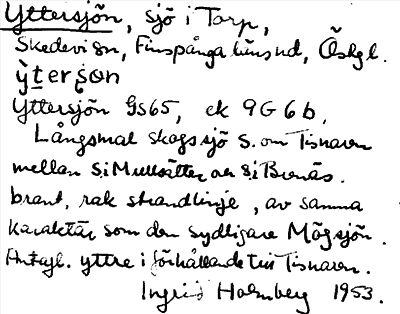 Yttersjön, sjö i Torp,
Skedevi sn, Finspånga läns hd, Östgl.
ỳtersøn
Yttersjön Gs65, ek 9G 6b,
Långsmal skogssjö S. om Tisnaren
mellan S: i Mullsätter och S: i Bränäs.
brant, rak strandlinje, av samma
karaktär som den sydligare Mögsjön.
Antagl. yttre i förhållande till Tisnaren.
Ingrid Holmberg 1953.